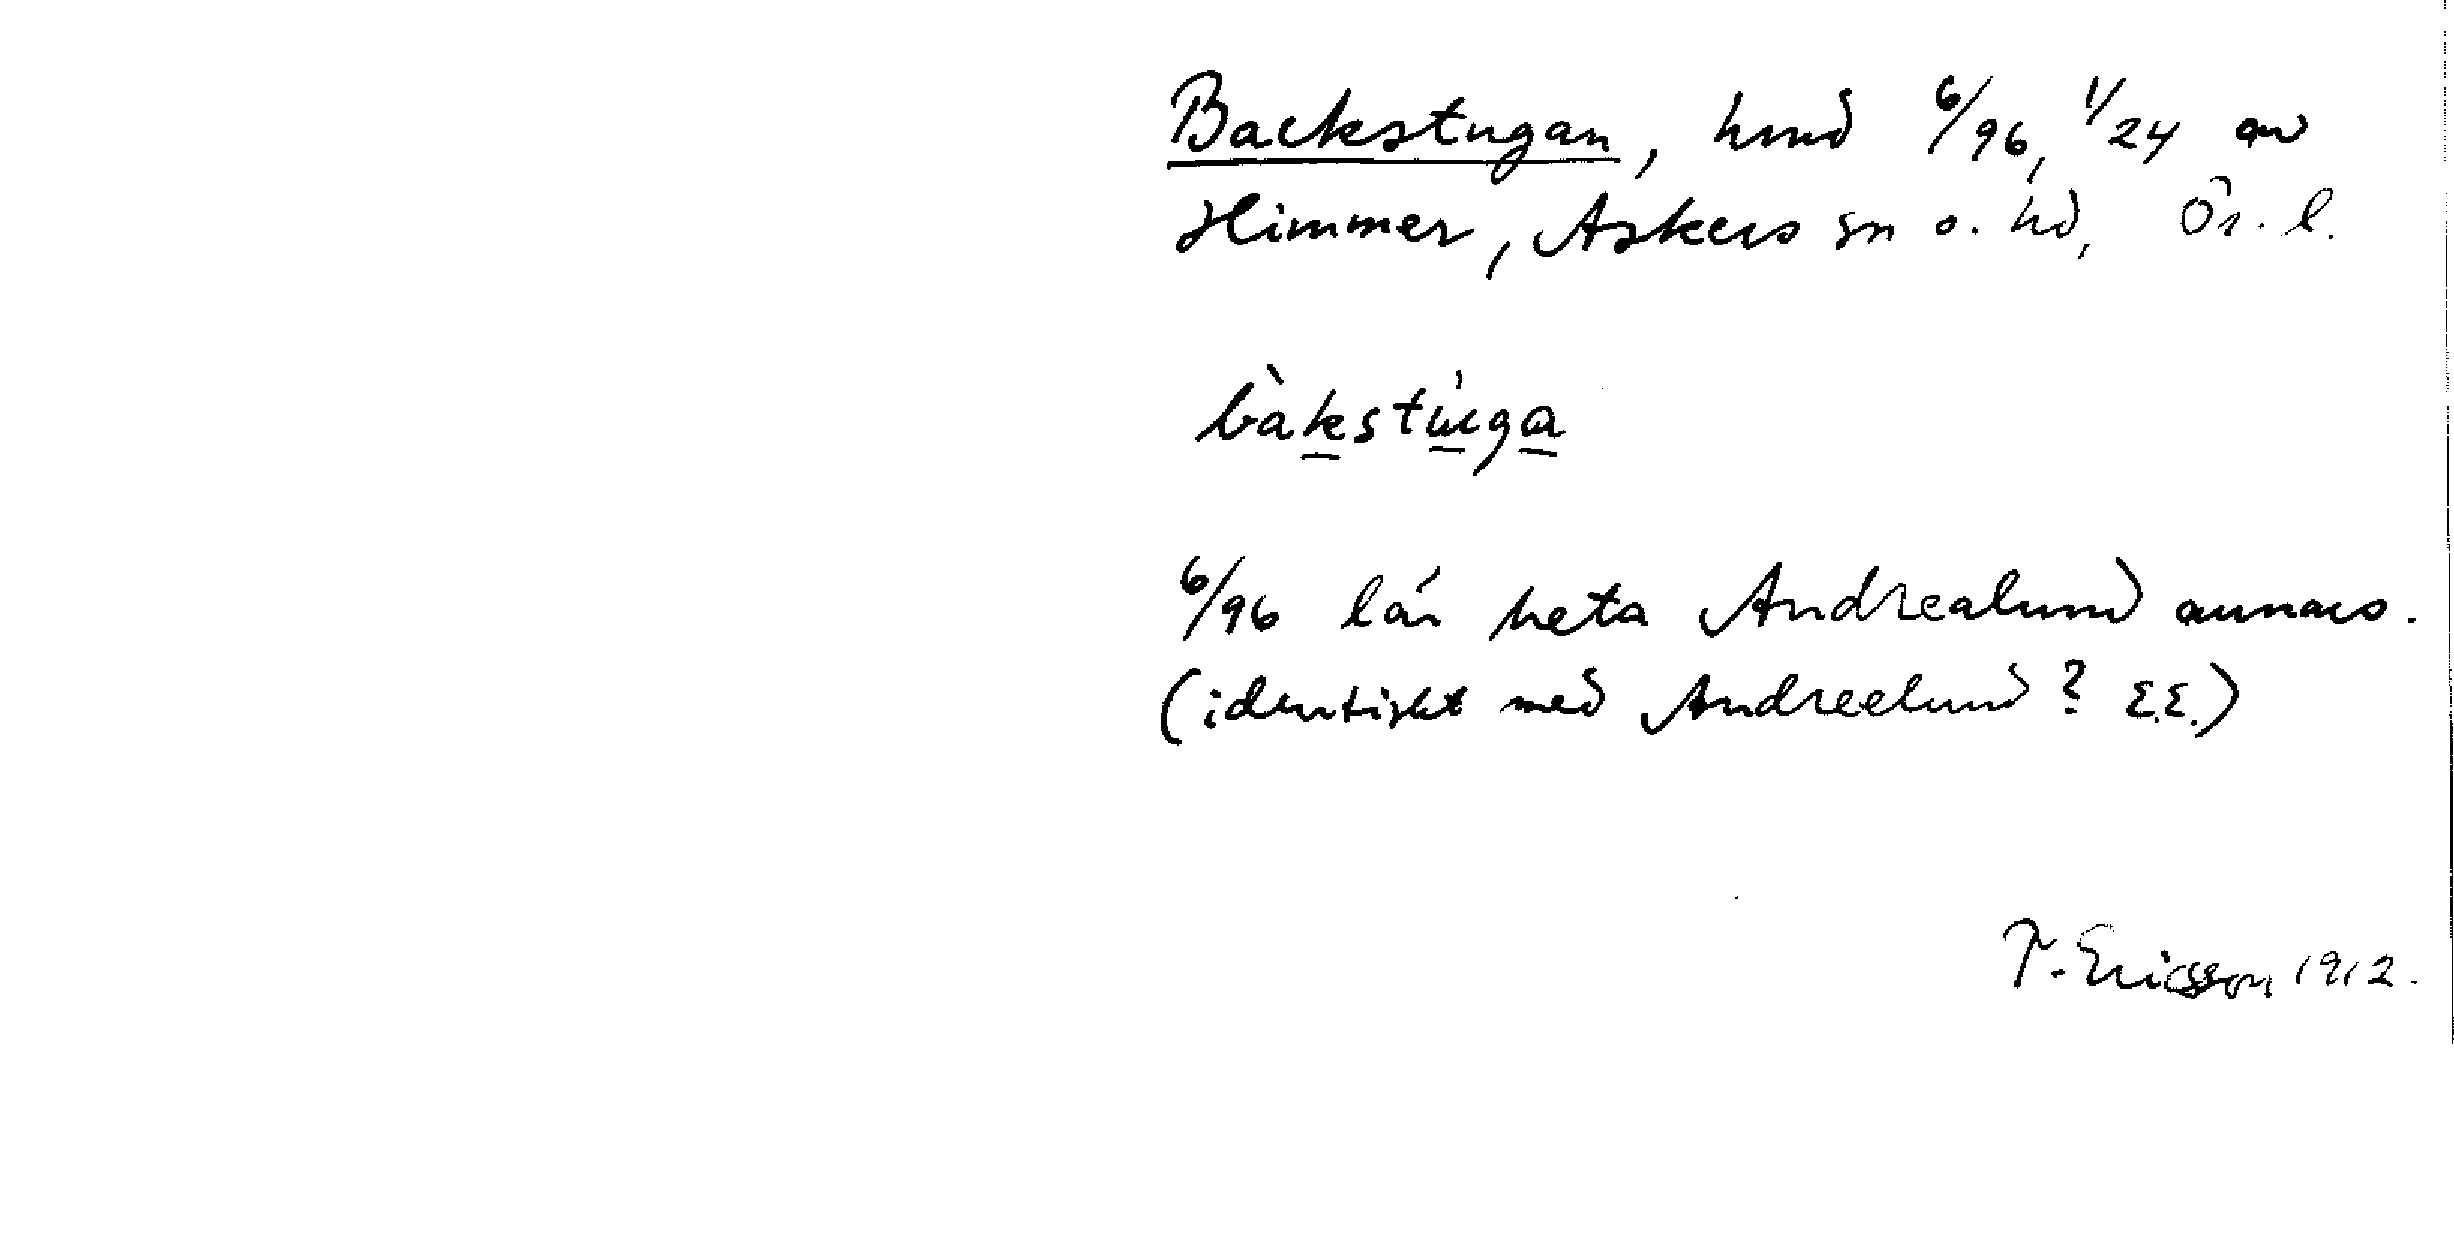 Backstugan, hmd 6/96, 1/24 av
Himmer, Askers sn o. hd, Ör. l.
bàkstúga
6/96 lär heta Andrealund annars.
(identiskt med Andreelund? E.E.)
T. Ericsson 1912.